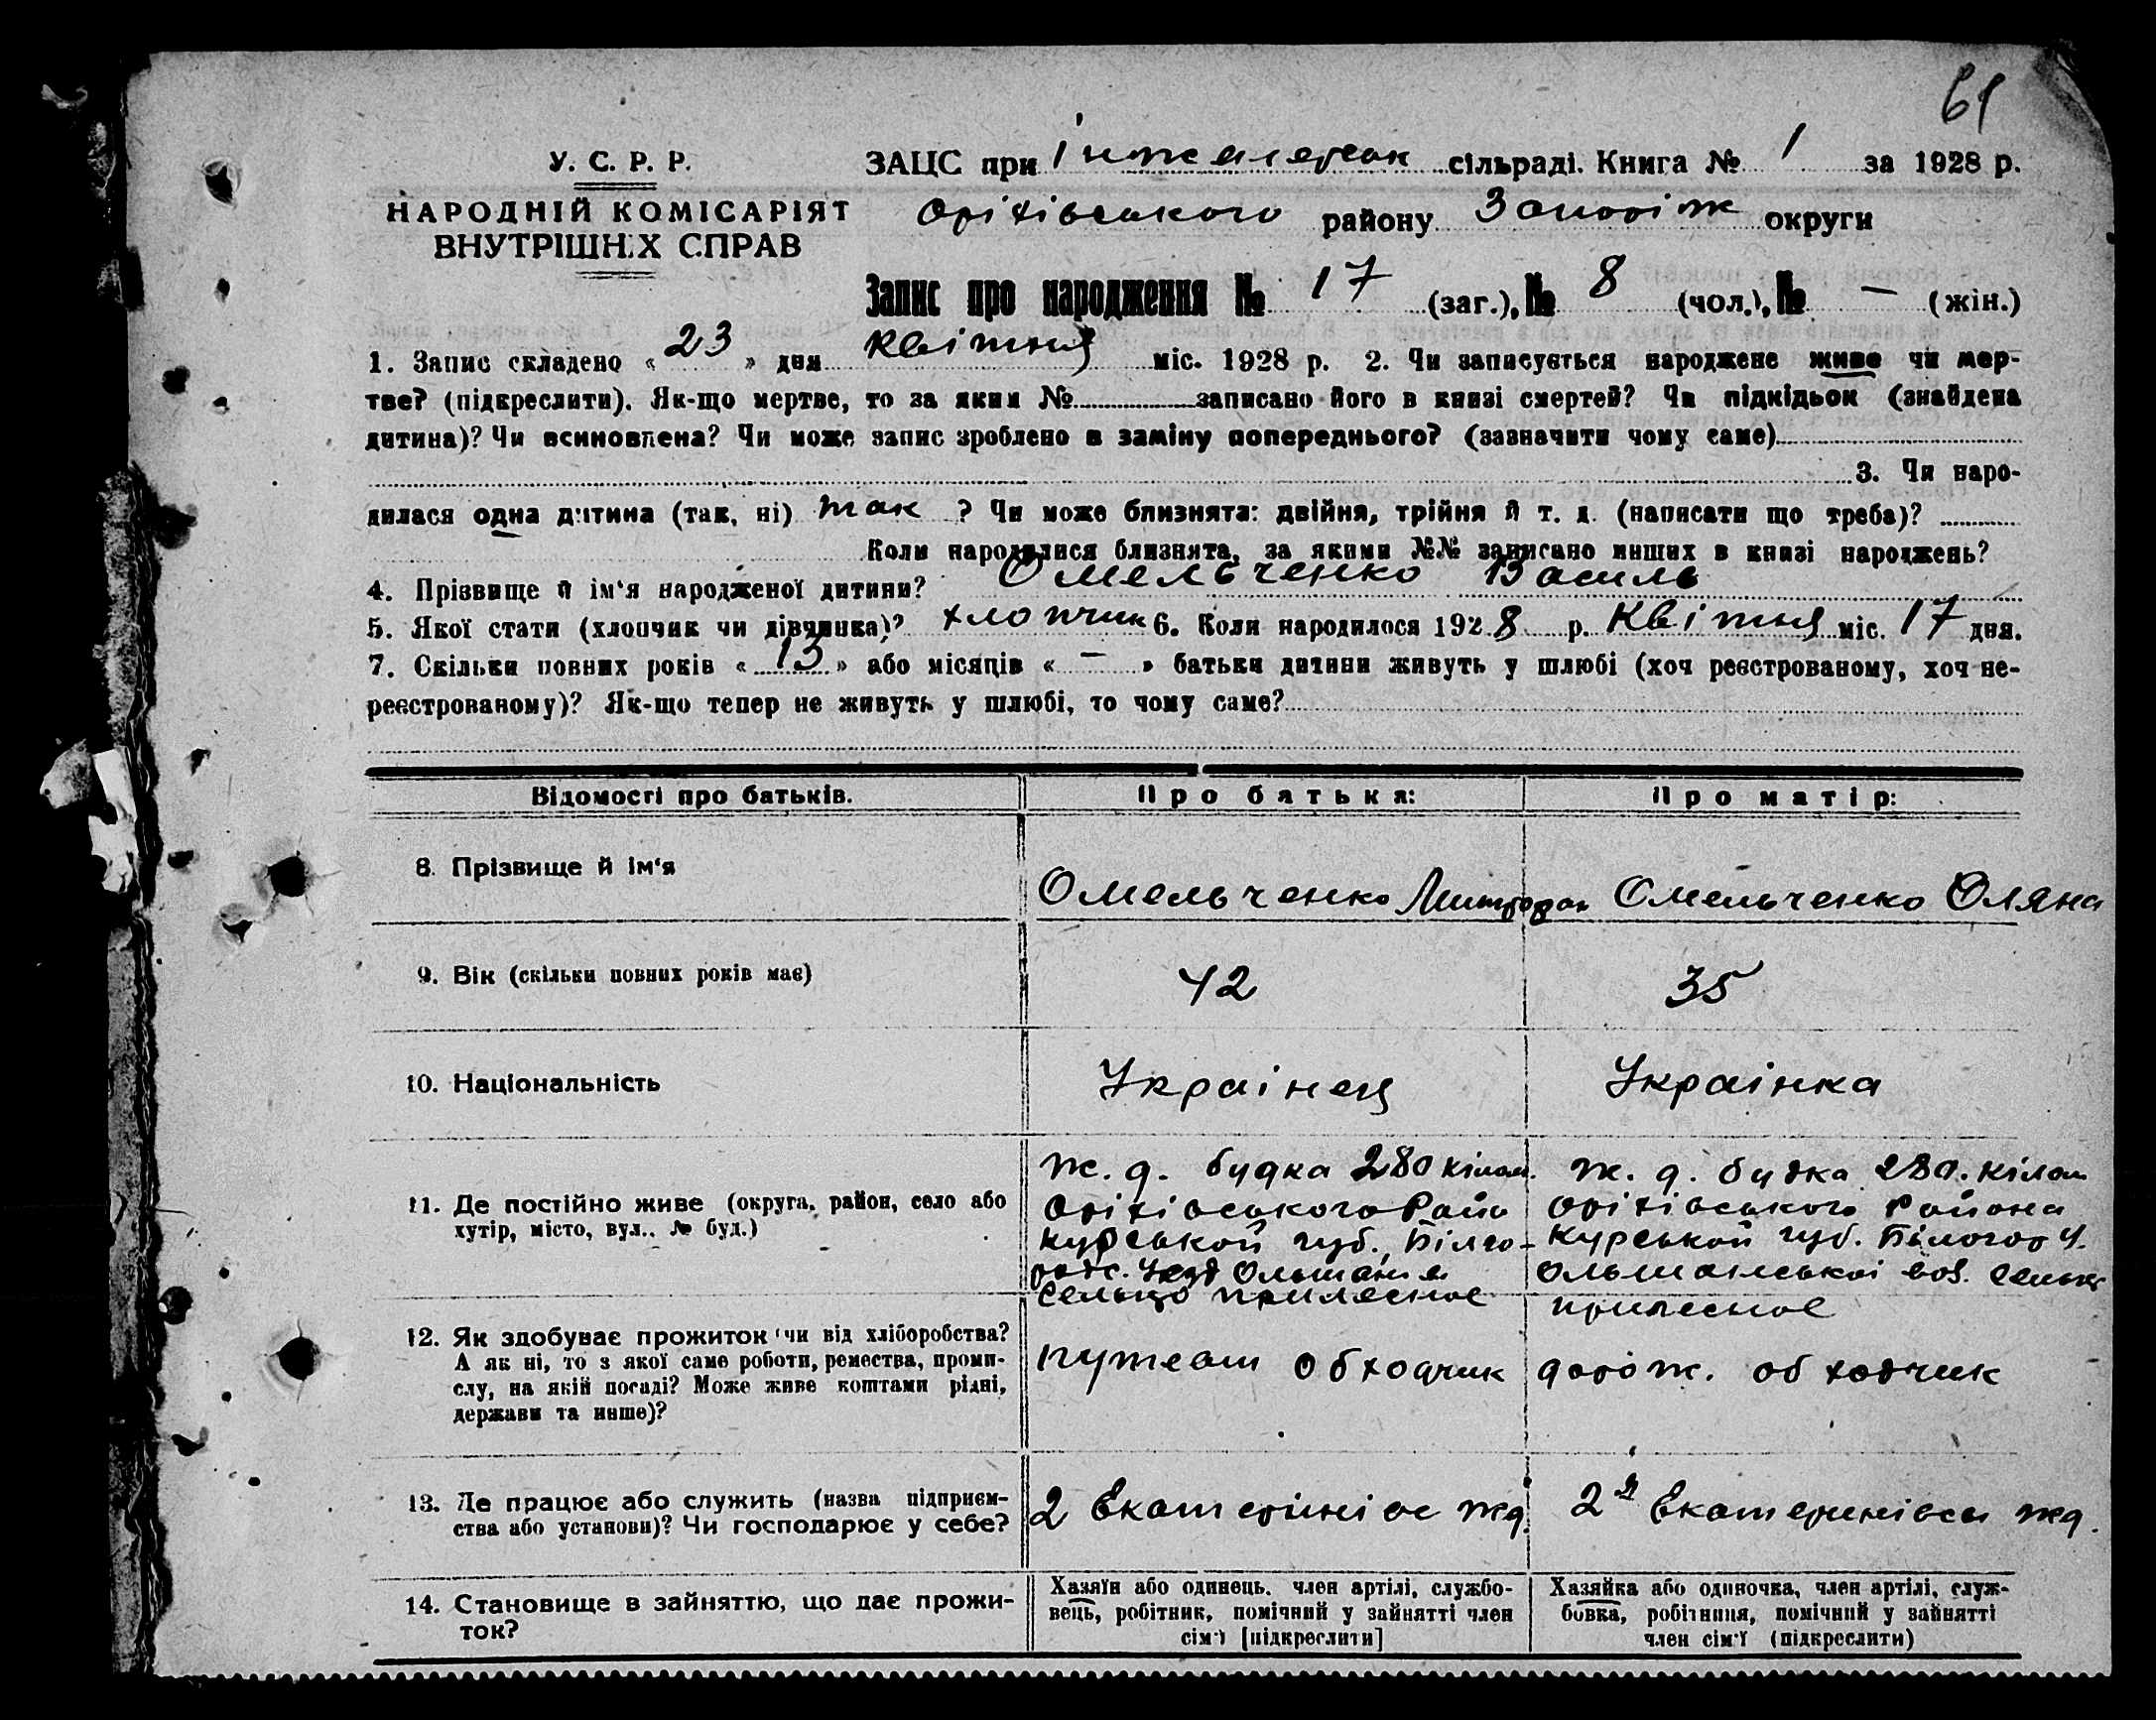 61
У. С. Р. Р.
НАРОДНІЙ КОМІСАРІЯТ
ВНУТРІШНІХ СПРАВ
ЗАЦС при сільраді. Книга № 1 за 1928 р.
Оріхівського району Запоріж округи
Запис про народження № 17 (заг.), № 8 (чол.), № — (жін.)
1. Запис складено « 23 » дня Квітня міс. 1928 р. 2. Чи записується народжене живе чи мер-
тве? (підкреслити). Як-що мертве, то за яким № записано його в книзі смертей? Чи підкідьок (знайдена
дитина)? Чи всиновлена? Чи може запис зроблено в заміну попереднього? (зазначити чому саме)
3. Чи наро-
дилася одна дитина (так, ні) так ? Чи може близнята: двійня, трійня й т. д. (написати що треба)?
Коли народилися близнята, за якими №№ записано инших в книзі народжень?
4. Прізвище й ім'я народженої дитини? Омельченко Василь
5. Якої стати (хлопчик чи дівчинка)? хлопчик 6. Коли народилося 1928 р. Квітня міс. 17 дня.
7. Скільки повних років « 13 » або місяців « — » батьки дитини живуть у шлюбі (хоч реєстрованому, хоч не-
реєстрованому)? Як-що тепер не живуть у шлюбі, то чому саме?
Відомості про батьків. Про батька: Про матір:
8. Прізвище й ім'я Омельченко Митрофан Омельченко Оляна
9. Вік (скільки повних років має) 42 35
10. Національність Українец Українка
11. Де постійно живе (округа, район, село або
хутір, місто, вул.. № буд.)
ж. д. будка 280 кілом.
Оріхівського Райо
Курськой губ. Білго-
родс. Уезд
Сельцо прилесное
ж. д. будка 280. кілом
Оріхівського Района
Курськой губ. Білогор У.
Ольшанськоі вол. Сельц
прилесное
12. Як здобуває прожиток (чи від хліборобства?
А як ні, то з якої саме роботи, ремества, проми-
слу, на якій посаді? Може живе коштами рідні,
держави та инше)?
путевий обходчик
дорож. обходчик
13. Де працює або служить (назва підприєм-
ства або установи)? Чи господарює у себе?
2 Екатерініос жд.
2я жд.
14. Становище в зайняттю, що дає прожи-
ток?
Хазяїн або одинець, член артілі, службо-
вець, робітник, помічний у зайнятті член
сім'ї [підкреслити]
Хазяйка або одиночка, член артілі, служ-
бовка, робітниця, помічний у зайнятті
член сім'ї (підкреслити)